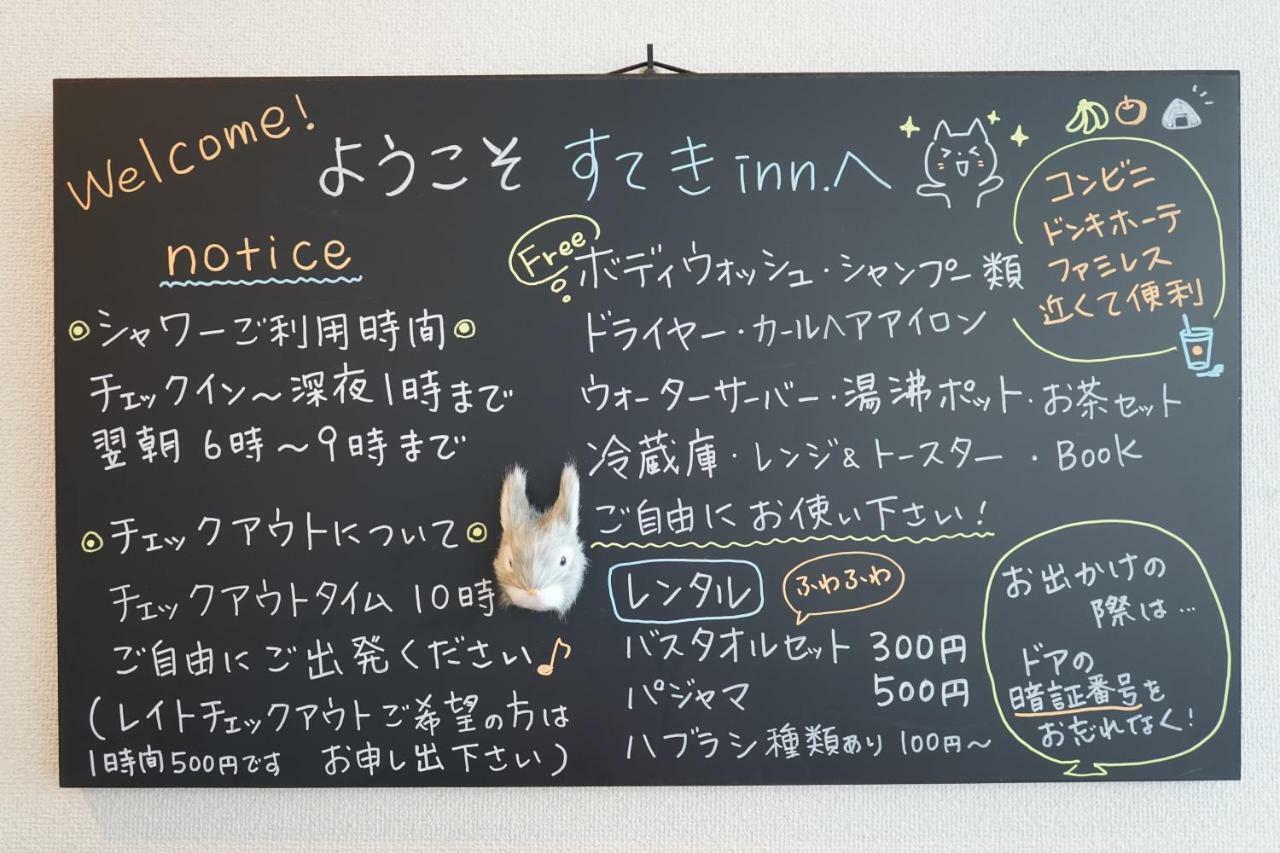 Welcome!
ようこそ すてきinn.へ
notice
◎シャワーご利用時間◎
チェックイン～深夜1時まで
翌朝 6時～9時まで
◎チェックアウトについて◎
チェックアウトタイム 10時
ご自由にご出発ください♪
(レイトチェックアウトご希望の方は
1時間500円です お申し出下さい)
Free
ボディウォッシュ・シャンプー類
ドライヤー・カールヘアアイロン
ウォーターサーバー・湯沸ポット・お茶セット
冷蔵庫・レンジ&トースター ・Book
ご自由にお使い下さい!
レンタル
ふわふわ
バスタオルセット 300円
パジャマ 500円
ハブラシ種類あり 100円～
コンビニ
ドンキホーテ
ファミレス
近くて便利
お出かけの
際は…
ドアの
暗証番号を
お忘れなく!